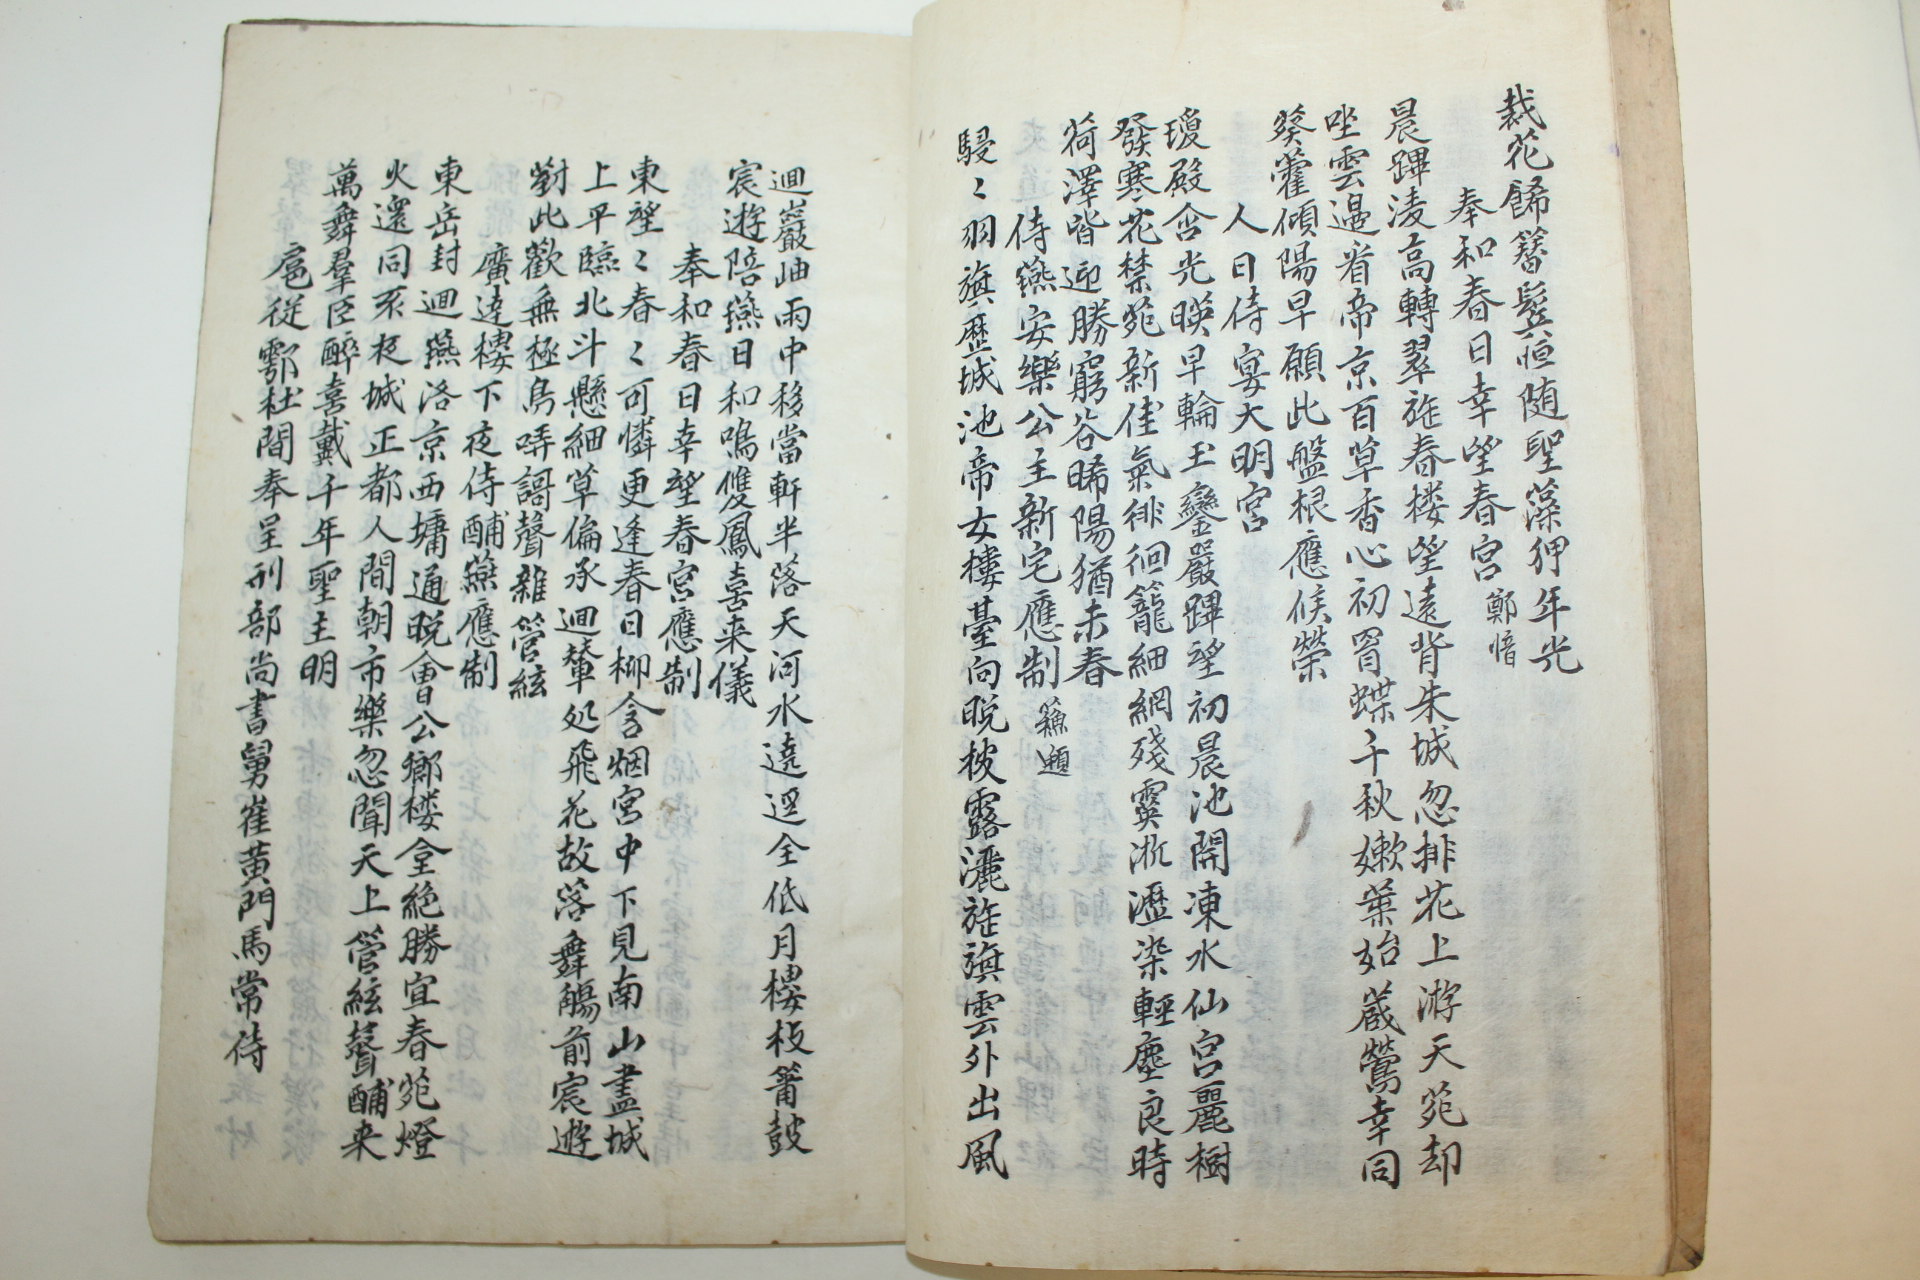 裁花飾簪髻恒随聖藻狎年光
奉和春日幸望春宮 鄭愔
晨蹕淩高轉翠旌春楼望遠背朱城忽排花上游天苑却
坐雲邊看帝京百草香心初罥蝶千秋嫩葉始蔵鶯幸同
葵藿傾陽早願此盤根應候榮
人日侍宴大明宮
瓊殿含光暎早輪玉鑾嚴蹕望初晨池開凍水仙宮麗樹
發寒花禁苑新佳氣徘徊籠細網殘霙淅瀝染輕塵良時
荷澤皆迎勝窮谷晞陽猶未春
侍燕安樂公主新宅應制 蘓頲
駸〻羽旗歴城池帝女樓臺向晩披露灑旌旗雲外出風
迴巖岫雨中移當軒半落天河水遶逕全低月樓枝簫鼓
宸遊陪燕日和鳴雙鳳喜来儀
奉和春日幸望春宮應制
東望〻春〻可憐更逢春日柳含烟宮中下見南山盡城
上平臨北斗懸細草偏承迴輦処飛花故落舞觴前宸遊
對此歡無極鳥哢謌聲雜管絃
廣達樓下夜侍酺燕應制
東岳封迴燕洛京西墉通晩會公卿楼臺絶勝宜春苑燈
火還同不夜城正都人間朝市樂忽聞天上管絃聲酺来
萬舞羣臣醉喜戴千年聖主明
扈従鄠杜間奉呈刑部尚書舅崔黄門馬常侍